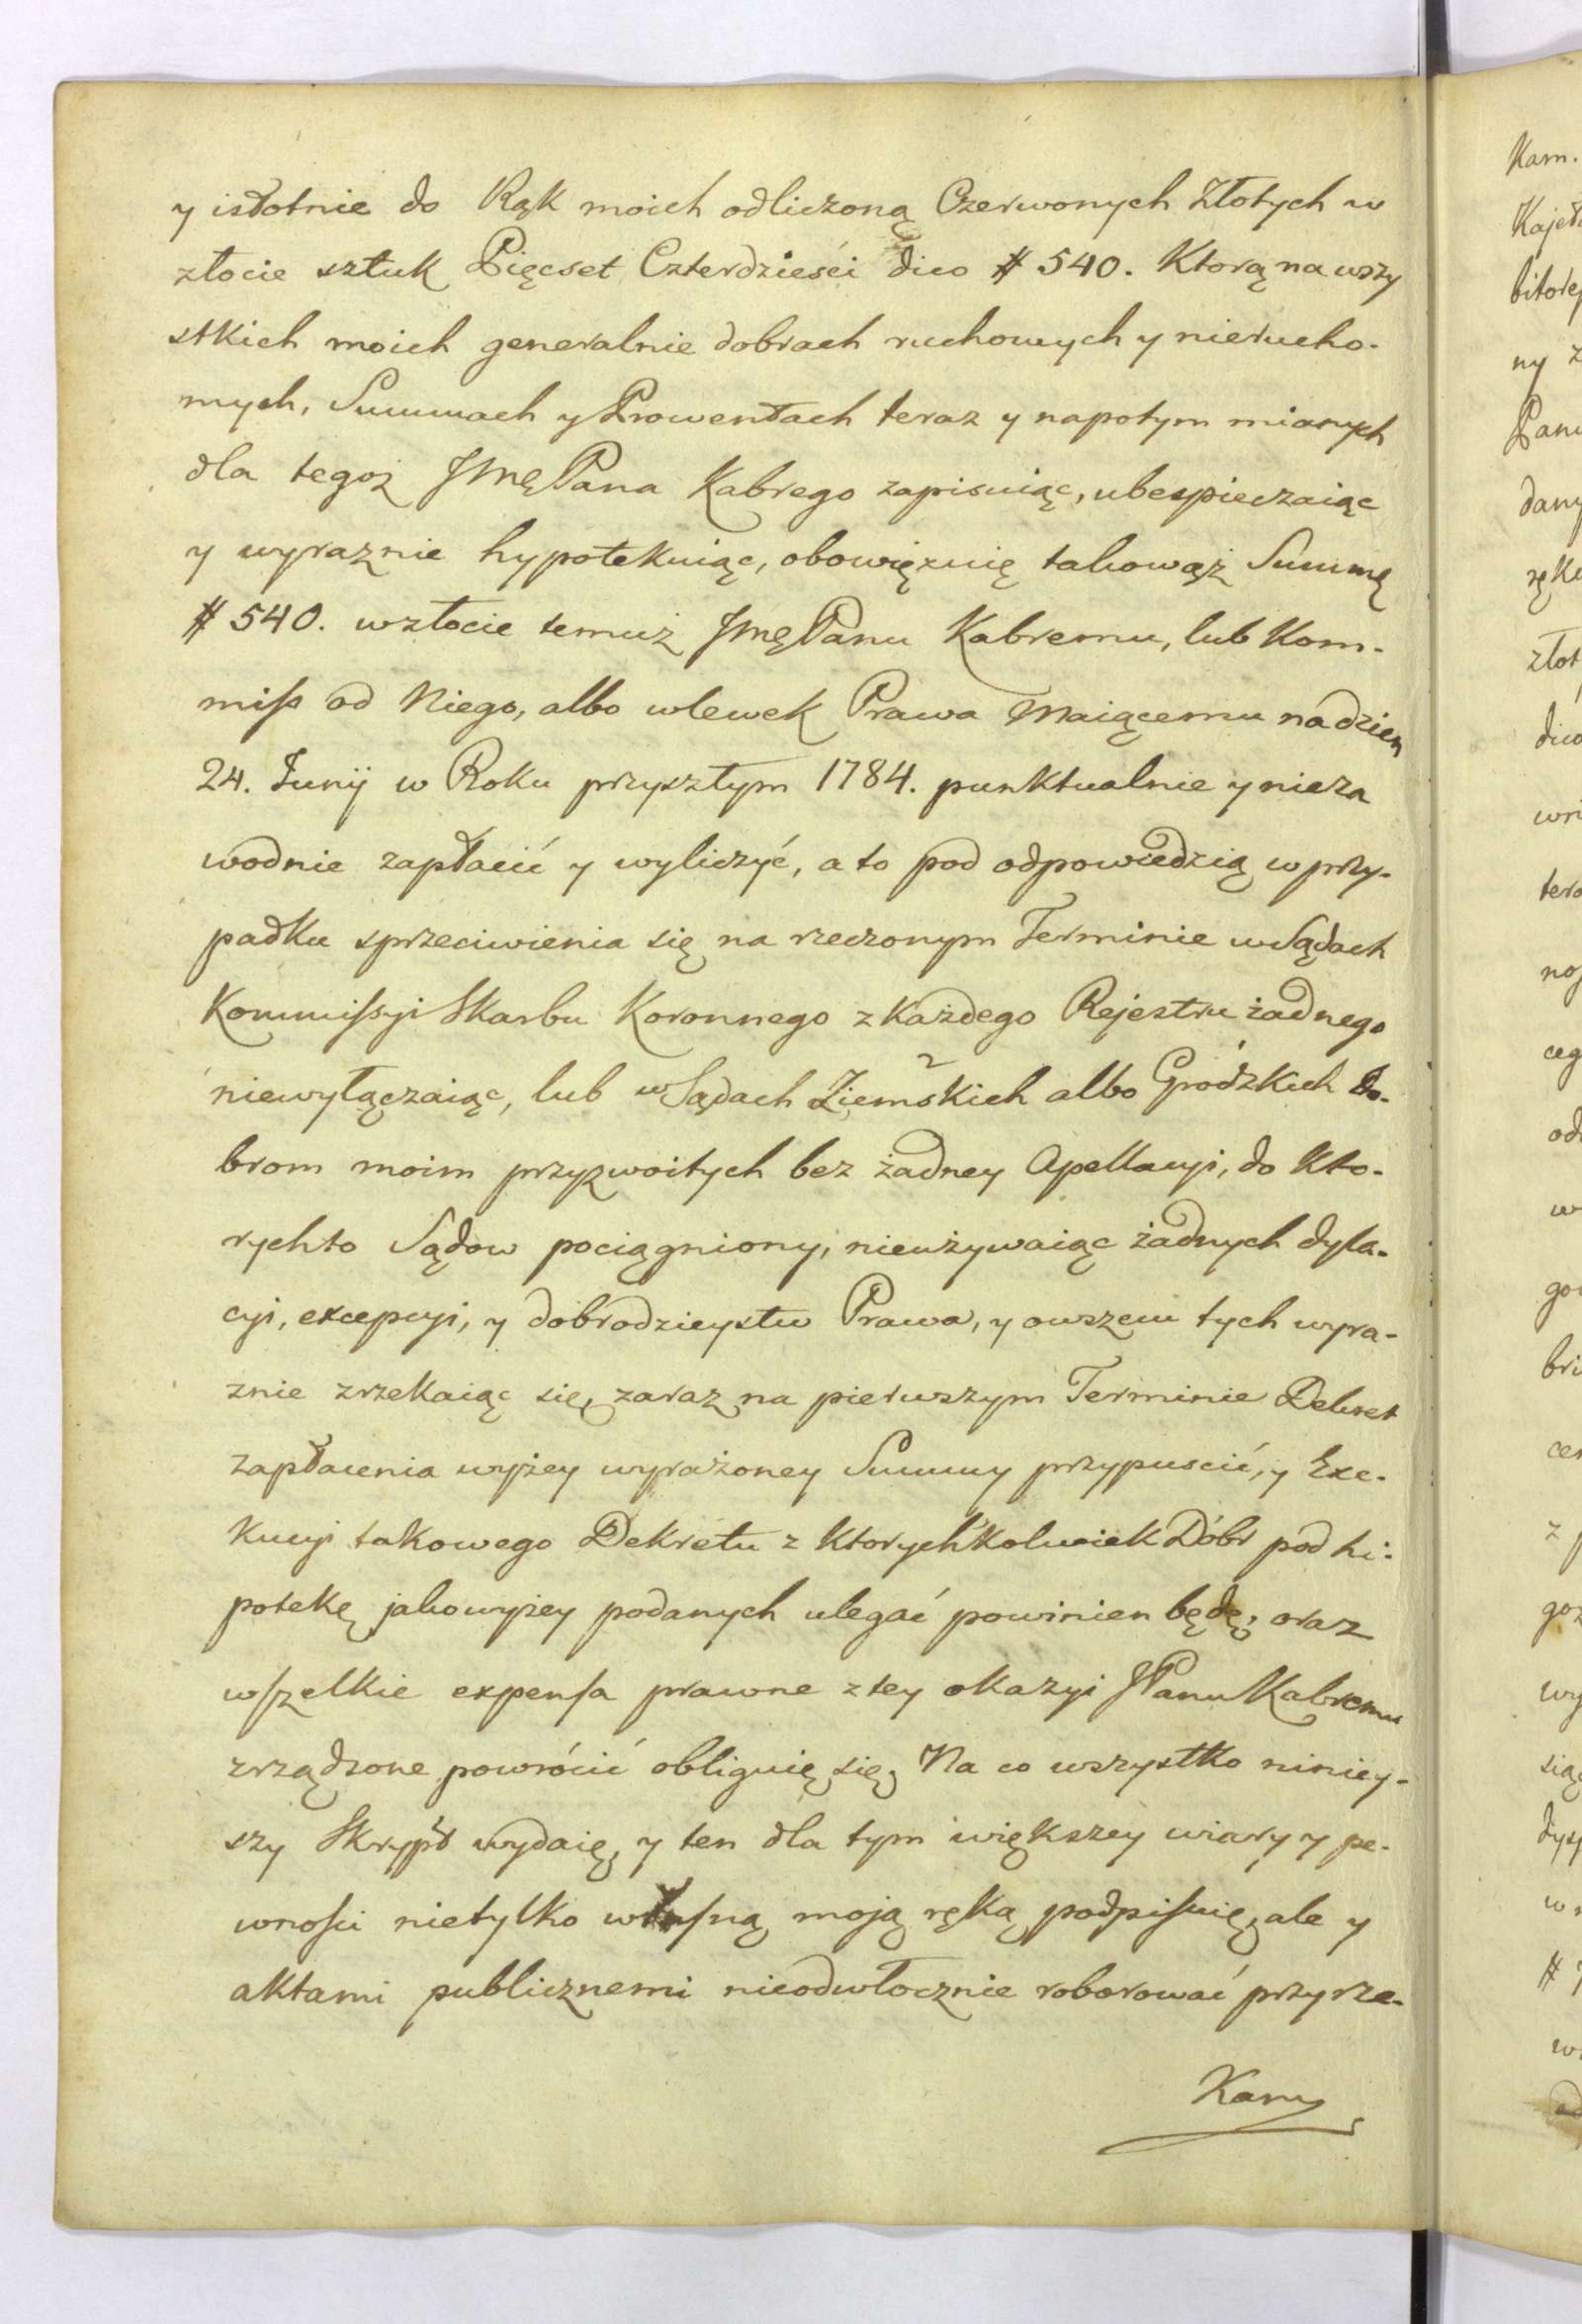 y istotnie do Rąk moich odliczoną Czerwonych Złotych w
złocie sztuk Pięcset Czterdzieści dico # 540. Ktorą na wszy
stkich moich generalnie dobrach ruchowych y nierucho-
mych, Summach y Prowentach teraz y napotym mianych
dla tegoż JMę Pana Kabrego zapisuiąc, ubespieczaiąc
y wyraznie hypotekuiąc, obowięzuię takowąż Summę
# 540. wzłocie temuż JMę Panu Kabremu, lub Kom-
miss od Niego, albo wlewek Prawa Maiącemu na dzien
24. Junij w Roku przyszłym 1784. punktualnie y nieza
wodnie zapłacić y wyliczyć, a to pod odpowiedzią w przy-
padku sprzeciwienia się na rzeczonym Terminie w Sądach
Kommissyi Skarbu Koronnego z Każdego Rejestru żadnego
niewyłączaiąc, lub w Sądach Ziemskich albo Grodzkich Do-
brom moim przyzwoitych bez żadney Apellacyi, do Kto-
rychto Sądow pociągniony, nieużywaiąc żadnych dyla-
cyi, excepcyi, y dobrodzieystw Prawa, y owszem tych wyra-
znie zrzekaiąc się, zaraz na pierwszym Terminie Dekret
zapłacenia wyżey wyrażoney Summy przypuscić, y Exe-
Kucyi takowego Dekretu z Ktorychkolwiek Dóbr pod hi-
potekę jakowyżey podanych ulegać powinien będę, oraz
wszelkie expensa prawne z tey okazyi JPanu Kabremu
zrządzone powrócić obliguię się. Na co wszystko niniey-
szy Skrypt wydaię, y ten dla tym większey wiary y pe-
wności nietylko własną moją ręką podpisuię, ale y
aktami publicznemi nieodwłocznie roborować przyrze-
Kam
Kam.
bitore
ny z
Panu
dany
ręku
złot
dico
tero
ceg
w
bri
goz
wy